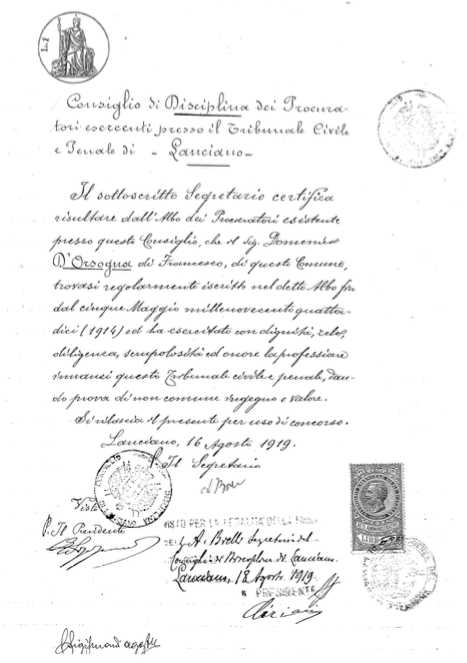 L.1
Consiglio di Disciplina dei Procura-
tori esercenti presso il Tribunale Civile
e Penale di - Lanciano -
Il sottoscritto Segretario certifica
risultare dall'Albo dei Procuratori esistente
presso questo Consiglio, che il Sig. Domenico
D'Orsogna di Francesco, di questo Comune,
trovasi regolarmente iscritto nel detto Albo fin
dal cinque Maggio millenovecento quattor-
dici (1914) ed ha esercitato con dignità, zelo,
diligenza, scrupolosità ed onore la professione
innanzi questo Tribunale civile e penale, dan-
do prova di non comune ingegno e valore.
Si rilascia il presente per uso di concorso.
Lanciano, 16 Agosto 1919.
p. Il Segretario
Visto
p. Il Presidente
VISTO PER LA LEGALITÀ DELLA FIRMA
Segretario del
Consiglio di Disciplina di Lanciano
Lanciano, 18 Agosto 1919.
IL PRESIDENTE